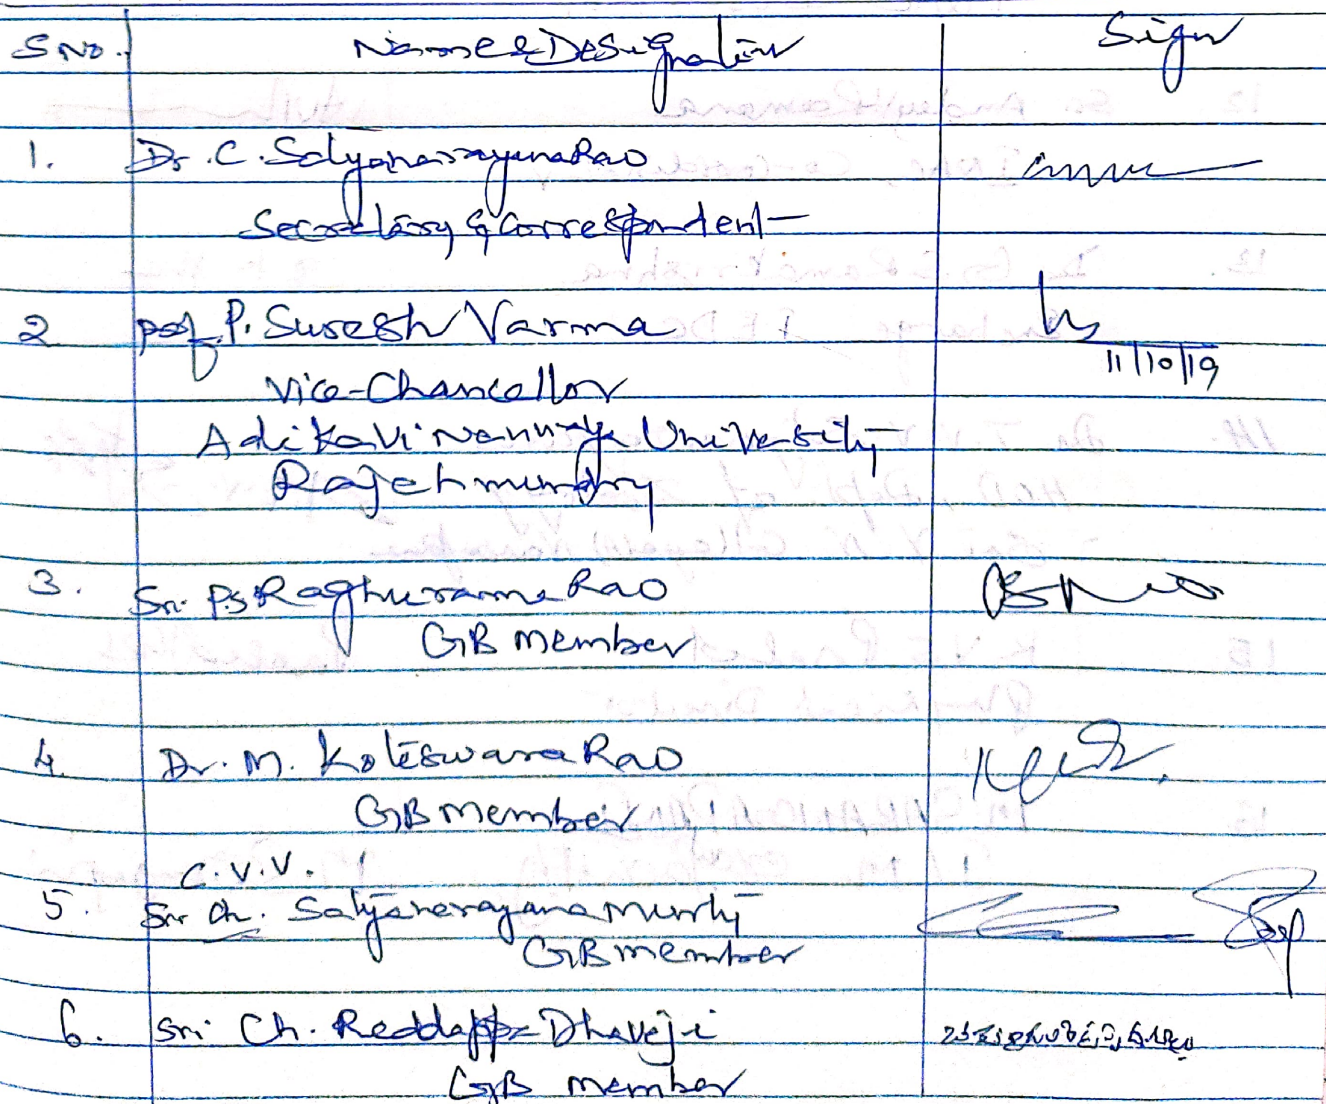 S NO. Name & Designation Sign
1. Dr. C. Satyanarayana Rao
Secretary & Correspondent
2 prof P. Suresh Varma
11/10/19
Vice-Chancellor
Adikavi Nannaya University
Rajahmundry
3. Sri. P.S Raghurama Rao
GB member
4. Dr. M. Koteswara Rao
GB member
C.V.V.
5. Sri Ch. Satyanarayana Murty
GB member
6. Sri Ch. Reddappa Dhaveji
GB member